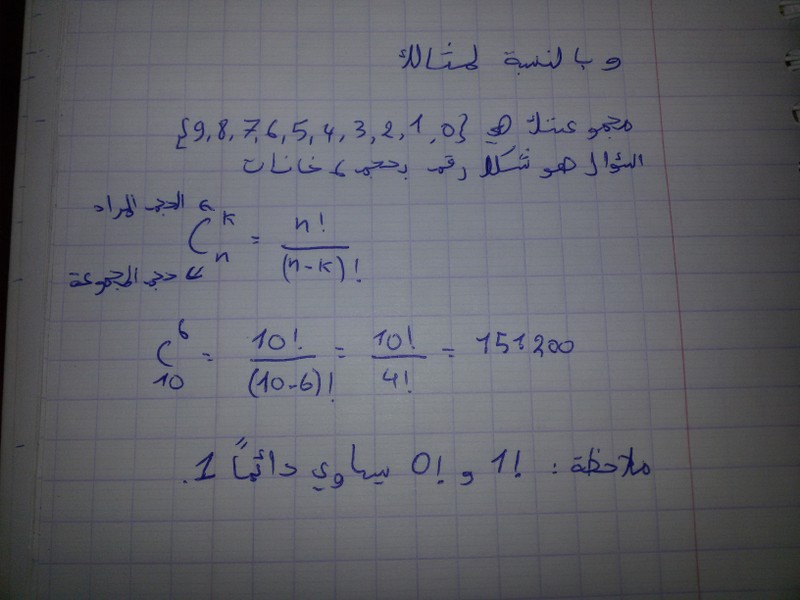 و بالنسبة لمثالك
مجموعتك هي {0, 1, 2, 3, 4, 5, 6, 7, 8, 9}
السؤال هو شكل رقم بحجم 6 خانات
الحجم المراد
C_n^k = n! / (n-k)!
حجم المجموعة
C_10^6 = 10! / (10-6)! = 10! / 4! = 151200
ملاحظة : 1! و 0! يساوي دائماً 1.